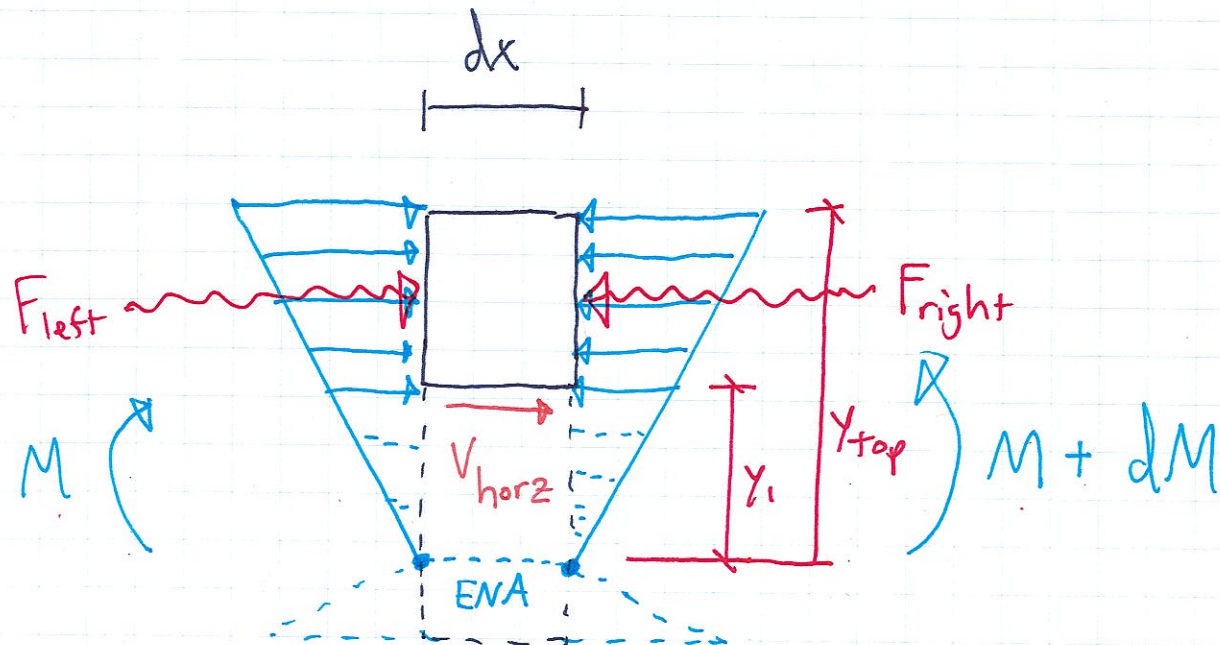 dx
F left
F right
M
V horz
y₁
y top
M + dM
ENA